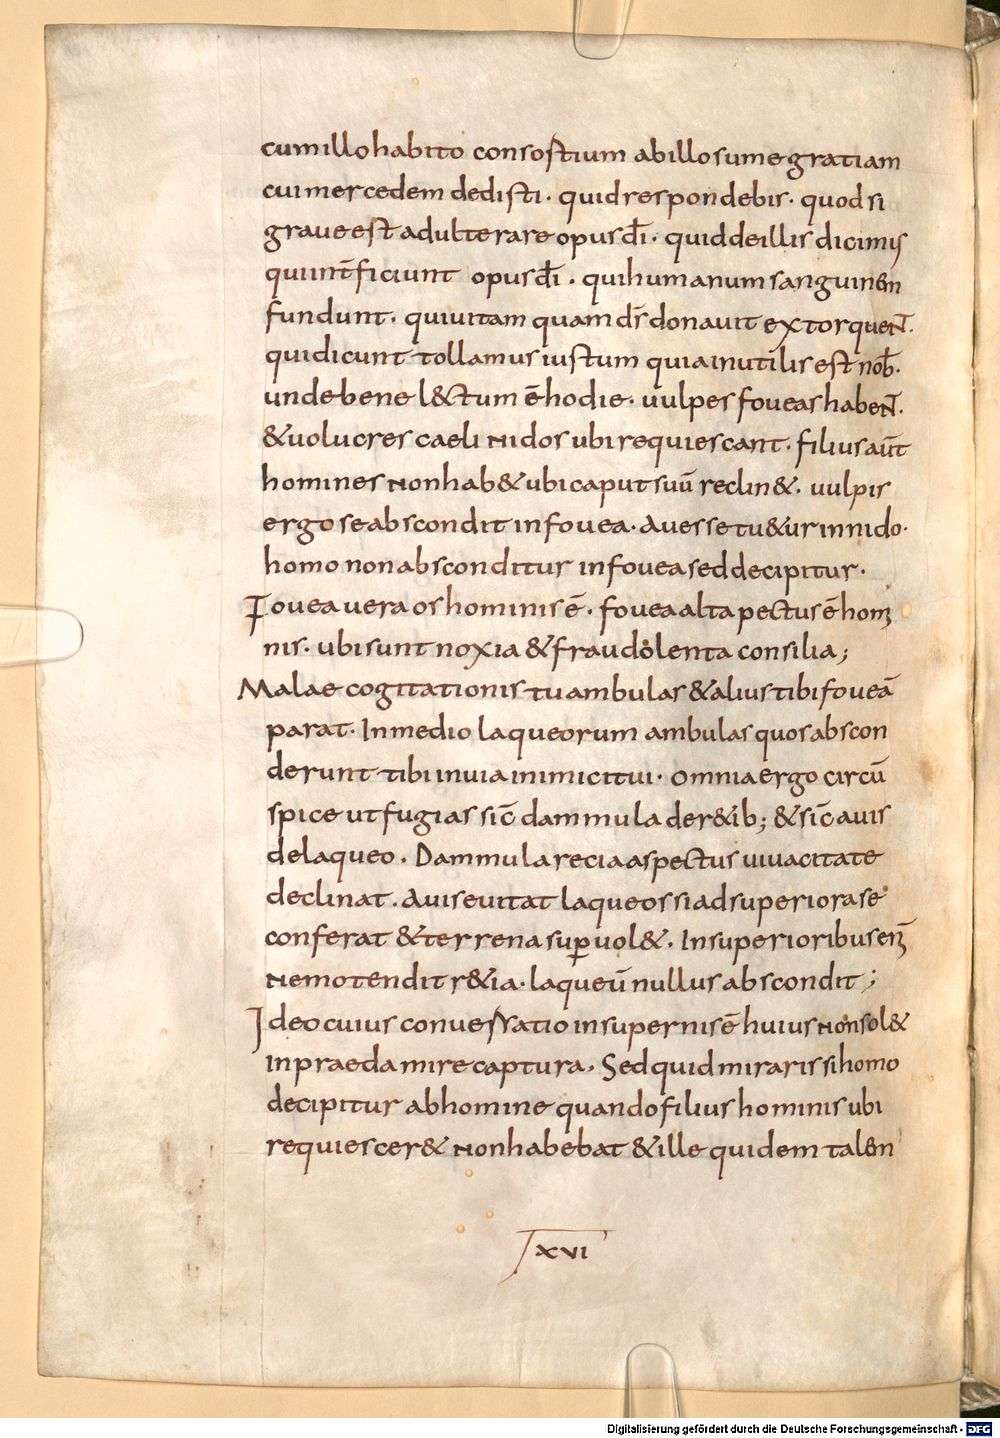 cum illo habito consortium ab illo sume gratiam
cui mercedem dedisti · quid respondebis · quod si
graue est adulterare opus dī · quid de illis dicimus
qui int̄ficiunt opus dī · qui humanum sanguinem
fundunt · qui uitam quam ds̄ donauit extorquent̄ ·
qui dicunt tollamus iustum quia inutilis est nob̄ ·
unde bene l&ctum ē hodie · uulpes foueas habent̄ ·
& uolucres caeli nidos ubi requiescant · filius aūt
homines non hab& ubi caput suū reclin& · uulpis
ergo se abscondit in fouea · aues se tu&ur in nido ·
homo non absconditur in fouea sed decipitur ·
Fouea uera os hominis ē · fouea alta pectus ē homi
nis · ubi sunt noxia & fraudolenta consilia ;
Malae cogitationis tu ambulas & alius tibi foueā
parat · In medio laqueorum ambulas quos abscon
derunt tibi in uia inimici tui · omnia ergo circū
spice ut fugias sic̄ dammula de r&ib; & sic̄ auis
de laqueo · Dammula recia aspectus uiuacitate
declinat · auis euitat laqueos si ad superiora se
conferat & terrena sup̱ uol& · In superioribus enim̄
nemo tendit r&ia · laqueū nullus abscondit ;
Ideo cuius conuersatio in supernis ē huius non sol&
in praeda mire captura · Sed quid miraris si homo
decipitur ab homine quando filius hominis ubi
requiescer& non habebat & ille quidem talem
xvi
Digitalisierung gefördert durch die Deutsche Forschungsgemeinschaft - DFG